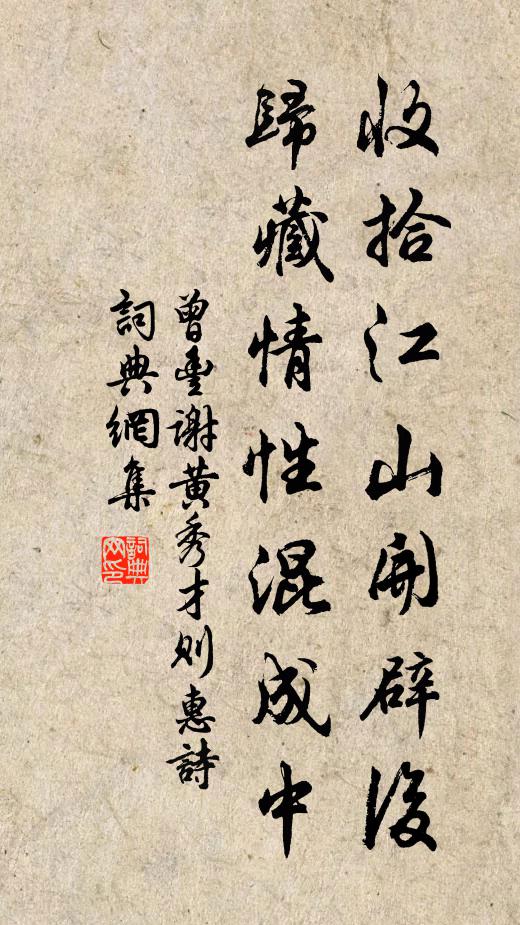 收拾江山開辟後
歸藏情性混成中
曾豐謝黃秀才則惠詩
詞典網集
詞典
网印